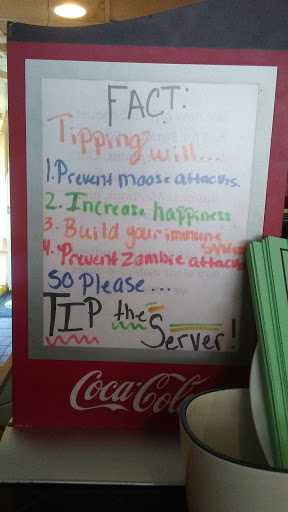 FACT:
Tipping will...
1. Prevent moose attacks.
2. Increase happiness
3. Build your immune system
4. Prevent Zombie attacks
So Please...
TIP the Server!
Coca-Cola